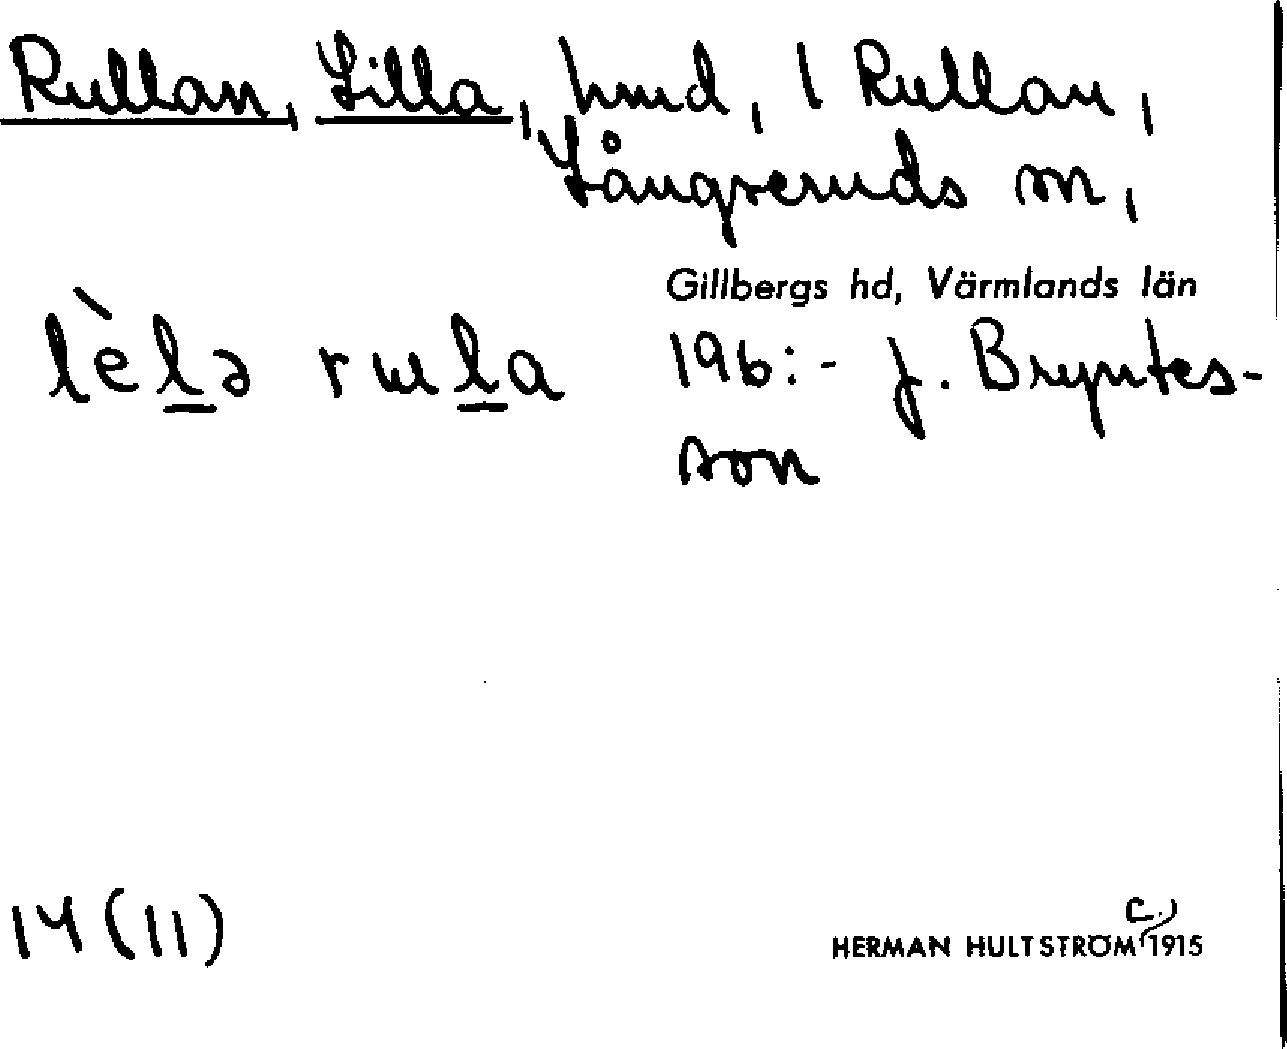 Rullan, Lilla, hmd, 1 Rullan,
Långseruds sn,
Gillbergs hd, Värmlands län
lèlə rɯla 196:- J. Bryntes-
son
14 (11)
HERMAN HULTSTRÖM (c.) 1915